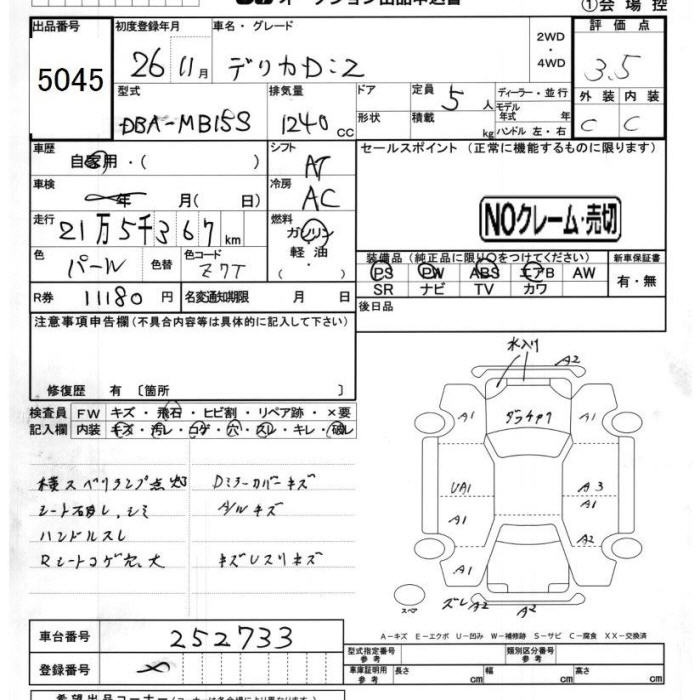 オークション出品申込書
①会場控
出品番号
5045
初度登録年月
26 11月
車名・グレード
デリカD:2
2WD
・
4WD
評価点
3.5
外装 内装
C C
型式
DBA-MB15S
排気量
1240 CC
ドア
形状
定員 5人
積載 kg
ディーラー・並行
モデル
年式 年
ハンドル 左・右
車歴
自家用・( )
シフト
AT
セールスポイント (正常に機能するものに限ります)
車検
年 月( 日)
冷房
AC
NOクレーム・売切
走行
21万5千367km
燃料
ガソリン
軽油
・( )
色
パール
色替
色コード
Z7T
装備品(純正品に限り○をつけてください)
PS PW ABS エアB AW
SR ナビ TV カワ
新車保証書
有・無
R券 11180円
名変通知期限 月 日
後日品
注意事項申告欄(不具合内容等は具体的に記入して下さい)
修復歴 有 〔箇所 〕
検査員
記入欄
FW キズ・飛石・ヒビ割・リペア跡・×要
内装 キズ・汚レ・コゲ・穴・スレ・キレ・破レ
横スベリランプ点灯
Dミラーカバーキズ
シート破レ、シミ
A/Wキズ
ハンドルスレ
Rシートコゲ穴、大
キズUスリキズ
水入り
A2
A1
ダラキャク
A1
UA1
A3
A1
A1
A2
A1
スペア
ズレ A2 A2
A-キズ E-エクボ U-凹み W-補修跡 S-サビ C-腐食 XX-交換済
車台番号 252733
登録番号
型式指定番号
参考
類別区分番号
参考
車庫証明用
参考
長さ cm 幅 cm 高さ cm
希望出品コーナー